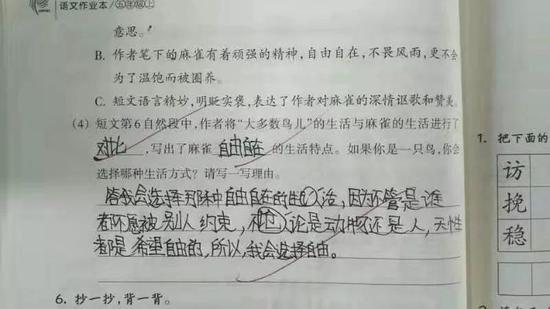 语文作业本/五年级上
意思。
B. 作者笔下的麻雀有着顽强的精神，自由自在，不畏风雨，更不会
为了温饱而被圈养。
C. 短文语言精妙，明贬实褒，表达了作者对麻雀的深情讴歌和赞美。
(4) 短文第6自然段中，作者将“大多数鸟儿”的生活与麻雀的生活进行了
对比，写出了麻雀 自由自在 的生活特点。如果你是一只鸟，你会
选择哪种生活方式？请写一写理由。
答我会选择 中自由自在的 活，因为不管是谁
都不愿被别人约束，不 论是动物还是人，天性
都是希望自由的，所以，我会选择自由。
6. 抄一抄，背一背。
1. 把下面的
访
挽
稳